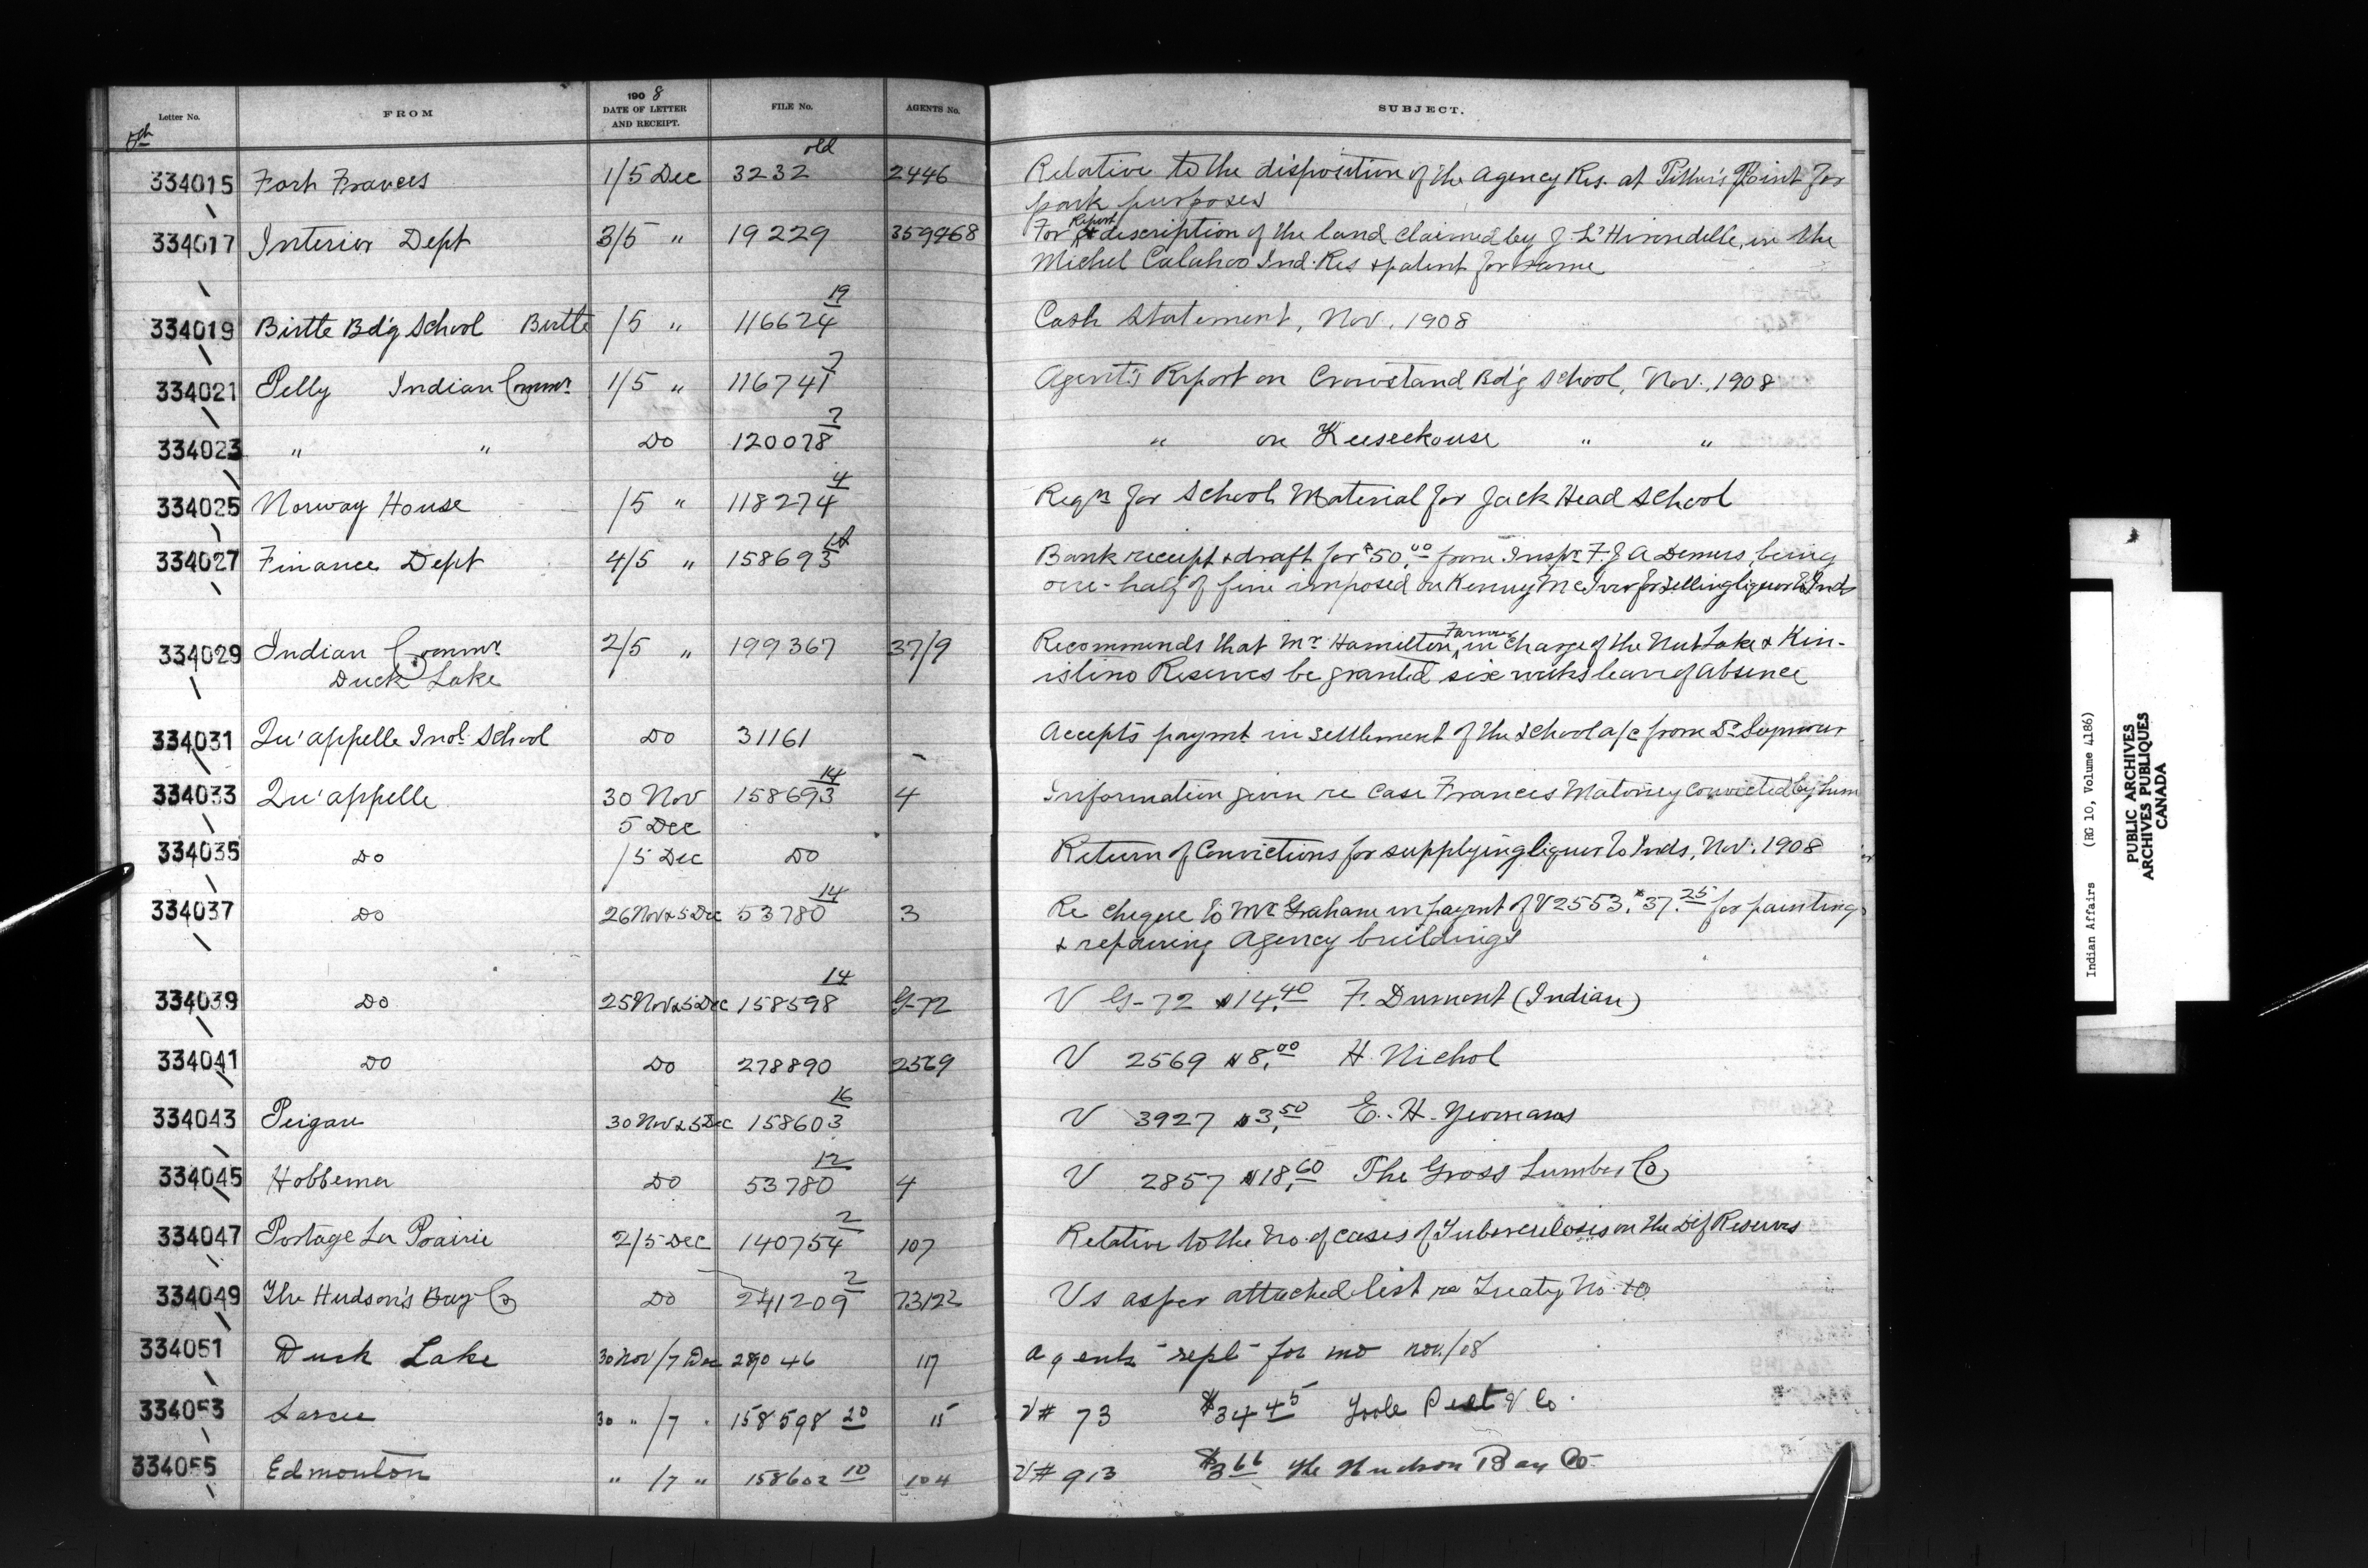 Letter No. FROM 1908 DATE OF LETTER AND RECEIPT. FILE No. AGENTS No. SUBJECT.
5th
334015 Fort Frances 1/5 Dec 3232 old 2446 Relative to the disposition of the Agency Res. at Pither's Point for
park purposes
334017 Interior Dept 3/5 " 19229 359968 For Report & description of the land claimed by J. L'Hirondelle, in the
Michel Calahoo Ind. Res & patent for same
334019 Birtle Bd'g School Birtle /5 " 116624 19 Cash Statement, Nov. 1908
334021 Pelly Indian Commr 1/5 " 116741 7 Agent's Report on Crowstand Bd'g School, Nov., 1908
334023 " " Do 120078 2 " on Keeseekouse " "
334025 Norway House /5 " 118274 4 Reqn for School Material for Jack Head School
334027 Finance Dept 4/5 " 158693 Bank receipt & draft for $50.00 from Inspr. F. J A Demers, being
one-half of fine imposed on Kenny McIvor for selling liquor to Inds
334029 Indian Commr 2/5 " 199367 37/9 Recommends that Mr Hamilton, Farmer in Charge of the Nut Lake & Kin-
Duck Lake istino Reserves be granted six weeks leave of absence
334031 Qu'appelle Indl School Do 31161 Accepts paymt in settlement of the School a/c from Dr Seymour
334033 Qu'appelle 30 Nov 158693 14 4 Information given re Case Frances Matoney Convicted by him
5 Dec
334035 Do /5 Dec Do Return of Convictions for supplying liquor to Inds, Nov. 1908
334037 Do 26 Nov & 5 Dec 53780 14 3 Re cheque to Mr Graham in paymt of V 2553. $37.25 for painting
& repairing Agency buildings
334039 Do 25 Nov & 5 Dec 158598 14 G-72 V G-72 $14.40 F. Dumont (Indian)
334041 Do Do 278890 2569 V 2569 $8.00 H. Nichol
334043 Peigan 30 Nov & 5 Dec 158603 16 V 3927 $3.50 E. H. Yeomans
334045 Hobbema Do 53780 12 4 V 2857 $18.60 The Gross Lumber Co
334047 Portage La Prairie 2/5 Dec 140754 2 107 Relative to the No. of cases of Tuberculosis on the Dif Reserves
334049 The Hudson's Bay Co Do 241209 2 73122 Vs as per attached list re Treaty No. 10
334051 Duck Lake 30 Nov/7 Dec 46 117 agents rept for mo nov/08
334053 Sarcee 30 " /7 " 158598 20 15 V# 73 $34 45 Co.
334055 Edmonton " /7 " 158602 10 104 V# 913 $3 66 The Hudson Bay Co
Indian Affairs (RG 10, Volume 4186)
PUBLIC ARCHIVES
ARCHIVES PUBLIQUES
CANADA